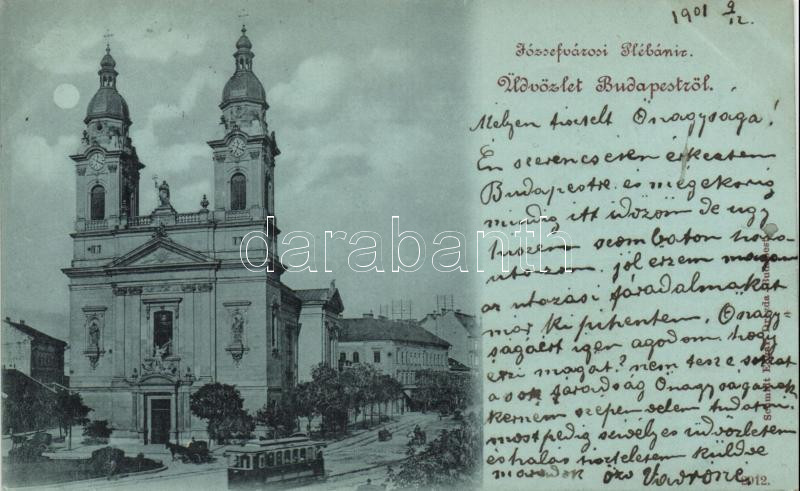 1901 9/12.
Józsefvárosi Plébánia.
Üdvözlet Budapestről.
Melyen tisztelt Önagysaga!
En szerencsesen erkeztem
Budapestre es megekorig
mindig itt idözöm de ugy
hiszem szombaton haza
utozom. jól erzem magam
az utozasi fáradalmakat
mar ki pihentem, Önagy-
ságaért igen agodom, hogy
erzi magat? nem tesz e sokat
a sok fáradság Önagysaganak
kernem szepen velem tudatni.
most pedig szivelyes üdvözletem
es halas tiszteletem küldve
maradok özv Vavroné
2012.
darabanth.com